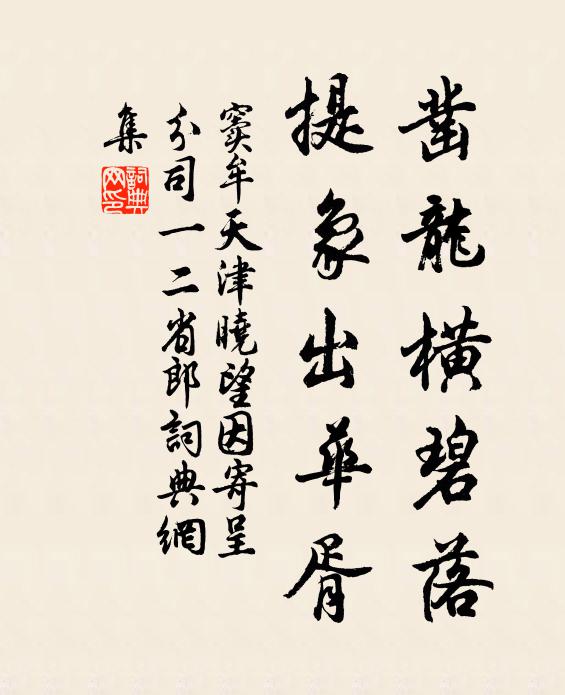 鑿龍橫碧落
提象出華胥
竇牟天津曉望因寄呈
分司一二省郎詞典網
集
詞典
網印